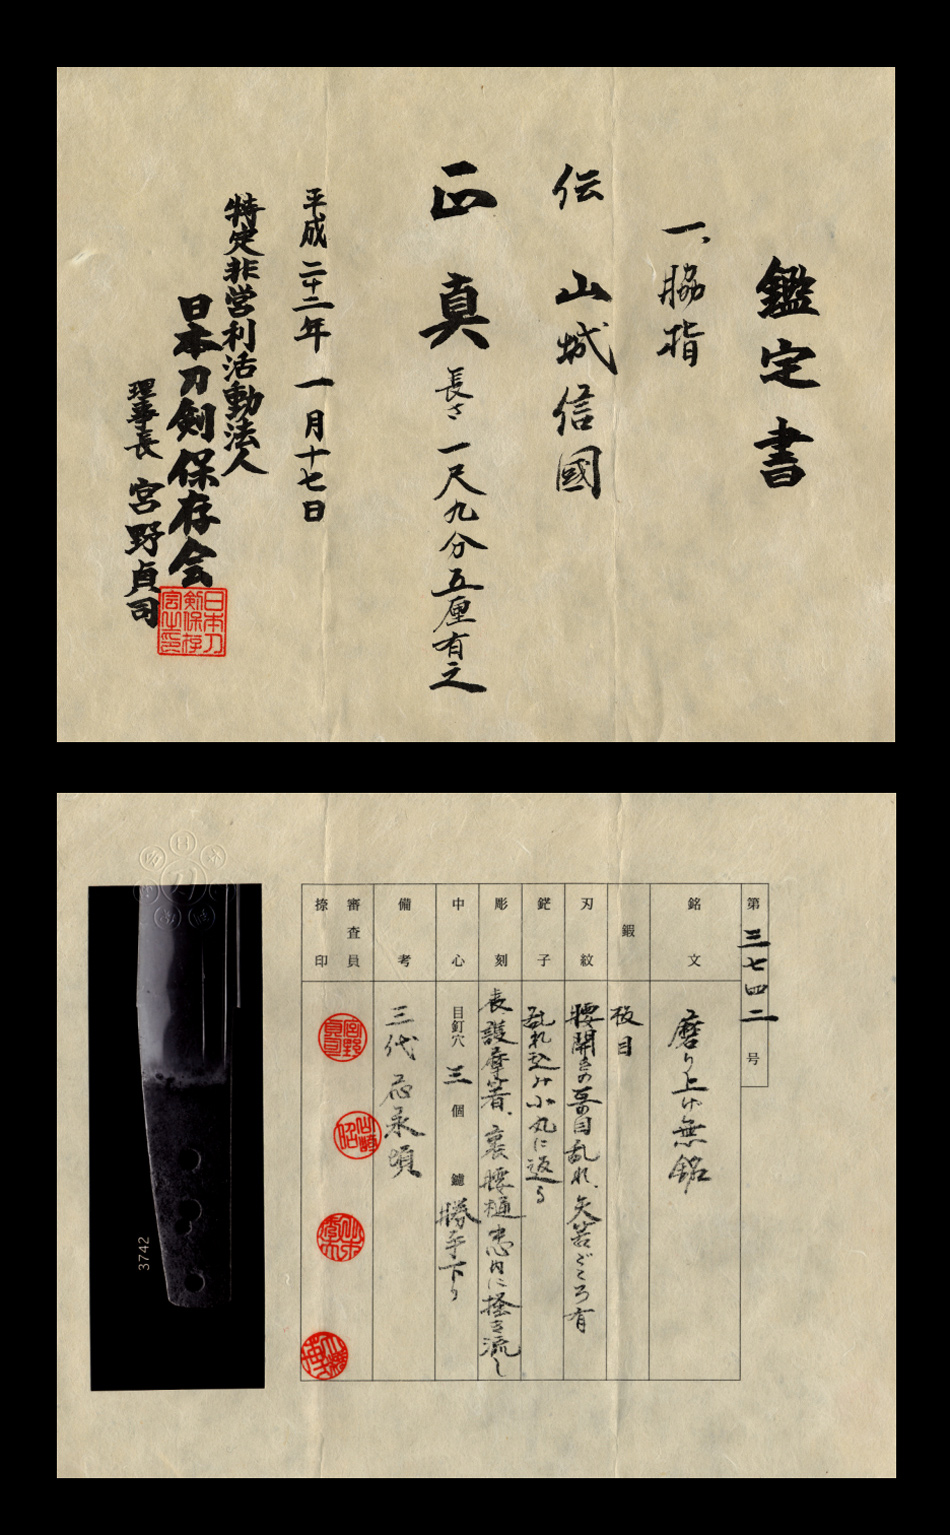 鑑定書
一、脇指
伝 山城信國
正真 長さ一尺九分五厘有之
平成二十二年一月十七日
特定非営利活動法人
日本刀剣保存会
理事長 宮野貞司
日本刀
剣保存
会之印
第三七四二号
銘文
磨り上げ無銘
鍜
板目
刃紋
腰開きの互の目乱れ、矢筈ごころ有
鋩子
乱れ込み小丸に返る
彫刻
表護摩箸、裏腰樋中心内に掻き流し
中心
目釘穴 三個 鑢 勝手下り
備考
三代 応永頃
審査員
捺印
宮野
貞司
3742